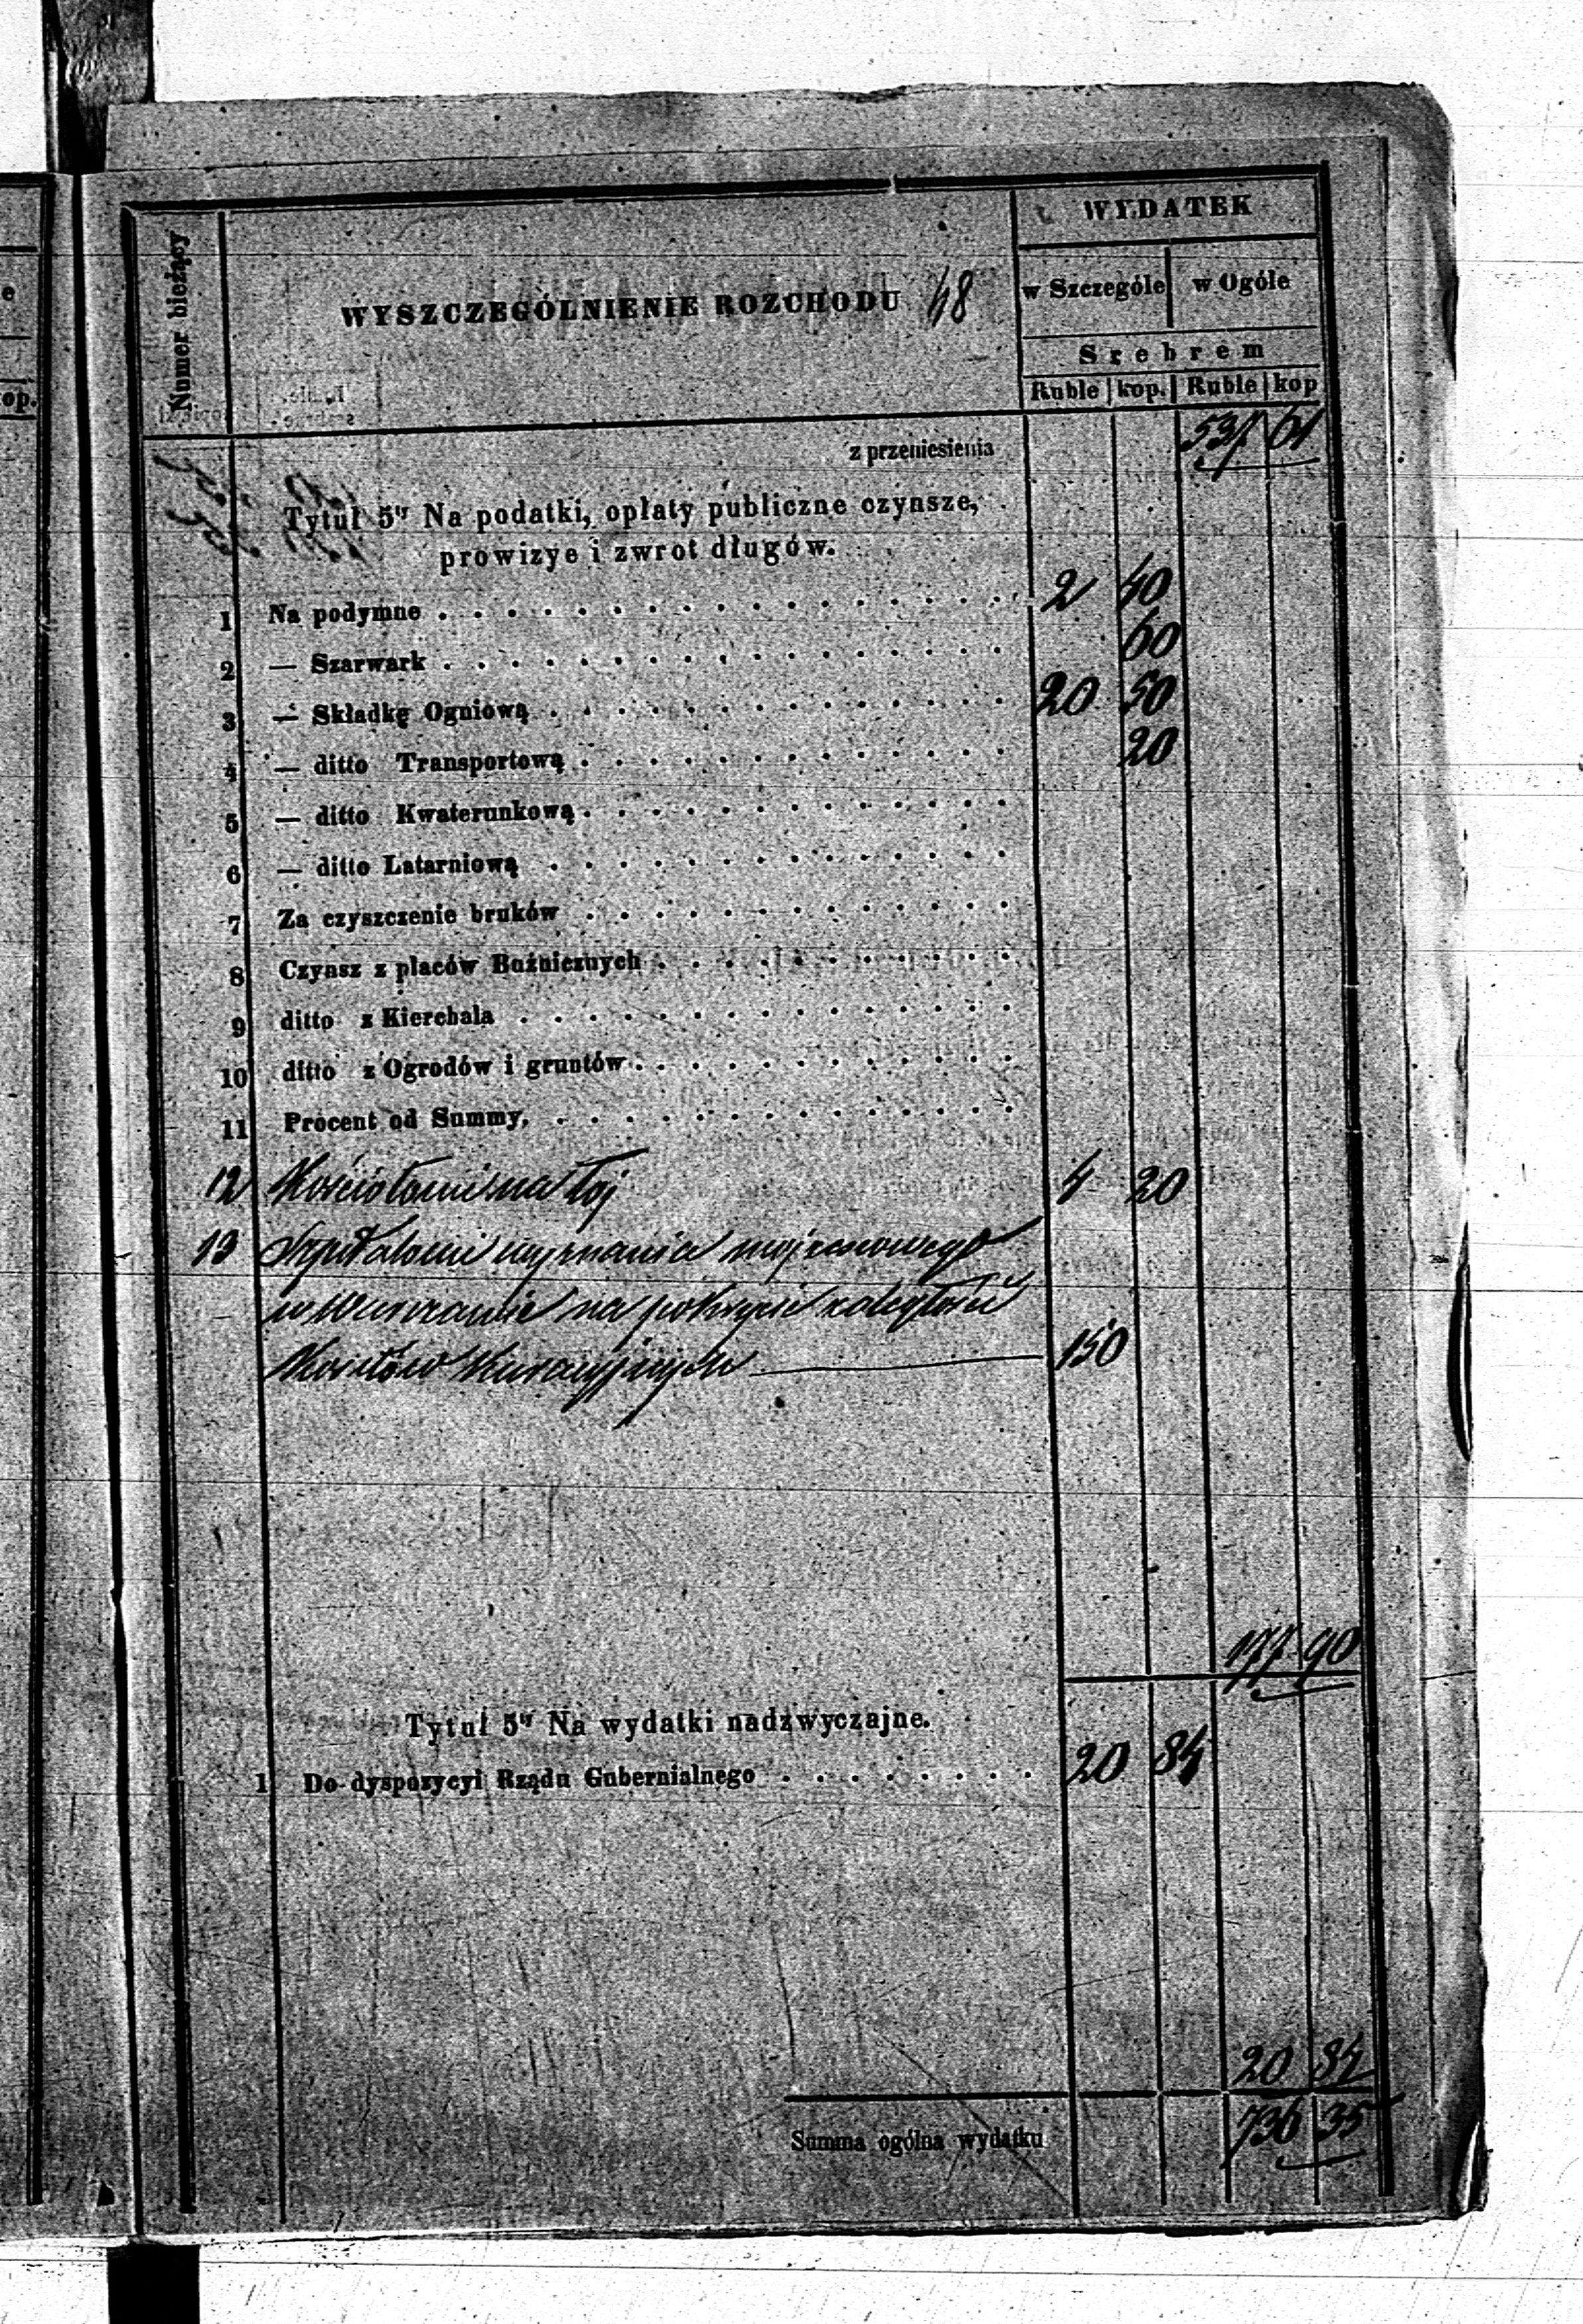 Numer bieżący
WYSZCZEGÓLNIENIE ROZCHODU 48
WYDATEK
w Szczególe w Ogóle
Srebrem
Ruble kop. Ruble kop
z przeniesienia 537 61
Tytuł 5ty Na podatki, opłaty publiczne czynsze,
prowizye i zwrot długów.
1 Na podymne . . . 2 40
2 — Szarwark . . . 60
3 — Składkę Ogniową . . . 20 50
4 — ditto Transportową . . . 20
5 — ditto Kwaterunkową . . .
6 — ditto Latarniową . . .
7 Za czyszczenie bruków . . .
8 Czynsz z placów Bużnicznych . . .
9 ditto z Kierchala . . .
10 ditto z Ogrodów i gruntów . . .
11 Procent od Summy, . . .
12 Kościołowi na łój 4 20
13 Szpitalowi wyznania mojżeszowego
w Warszawie na pokrycie zaległości
Kosztów Kuracyjnych — 150
177 90
Tytuł 5ty Na wydatki nadzwyczajne.
1 Do dyspozycyi Rządu Gubernialnego . . . 20 84
20 84
Summa ogólna wydatku 736 35